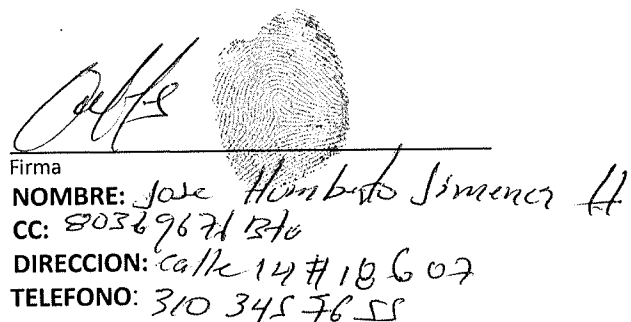 Firma
NOMBRE: Jose Humberto Jimenez H
CC: 80369671 Bta
DIRECCION: calle 14 # 18 G 07
TELEFONO: 310 345 76 55